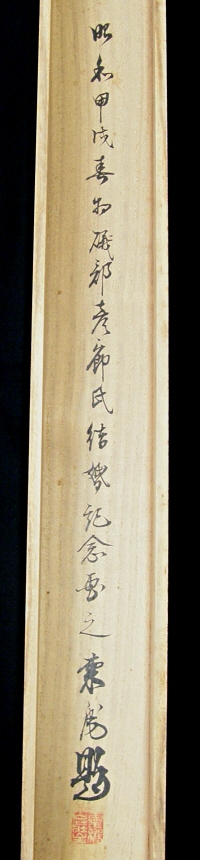 昭和甲戌春為磯部彦郎氏結婚記念画之 東虎題